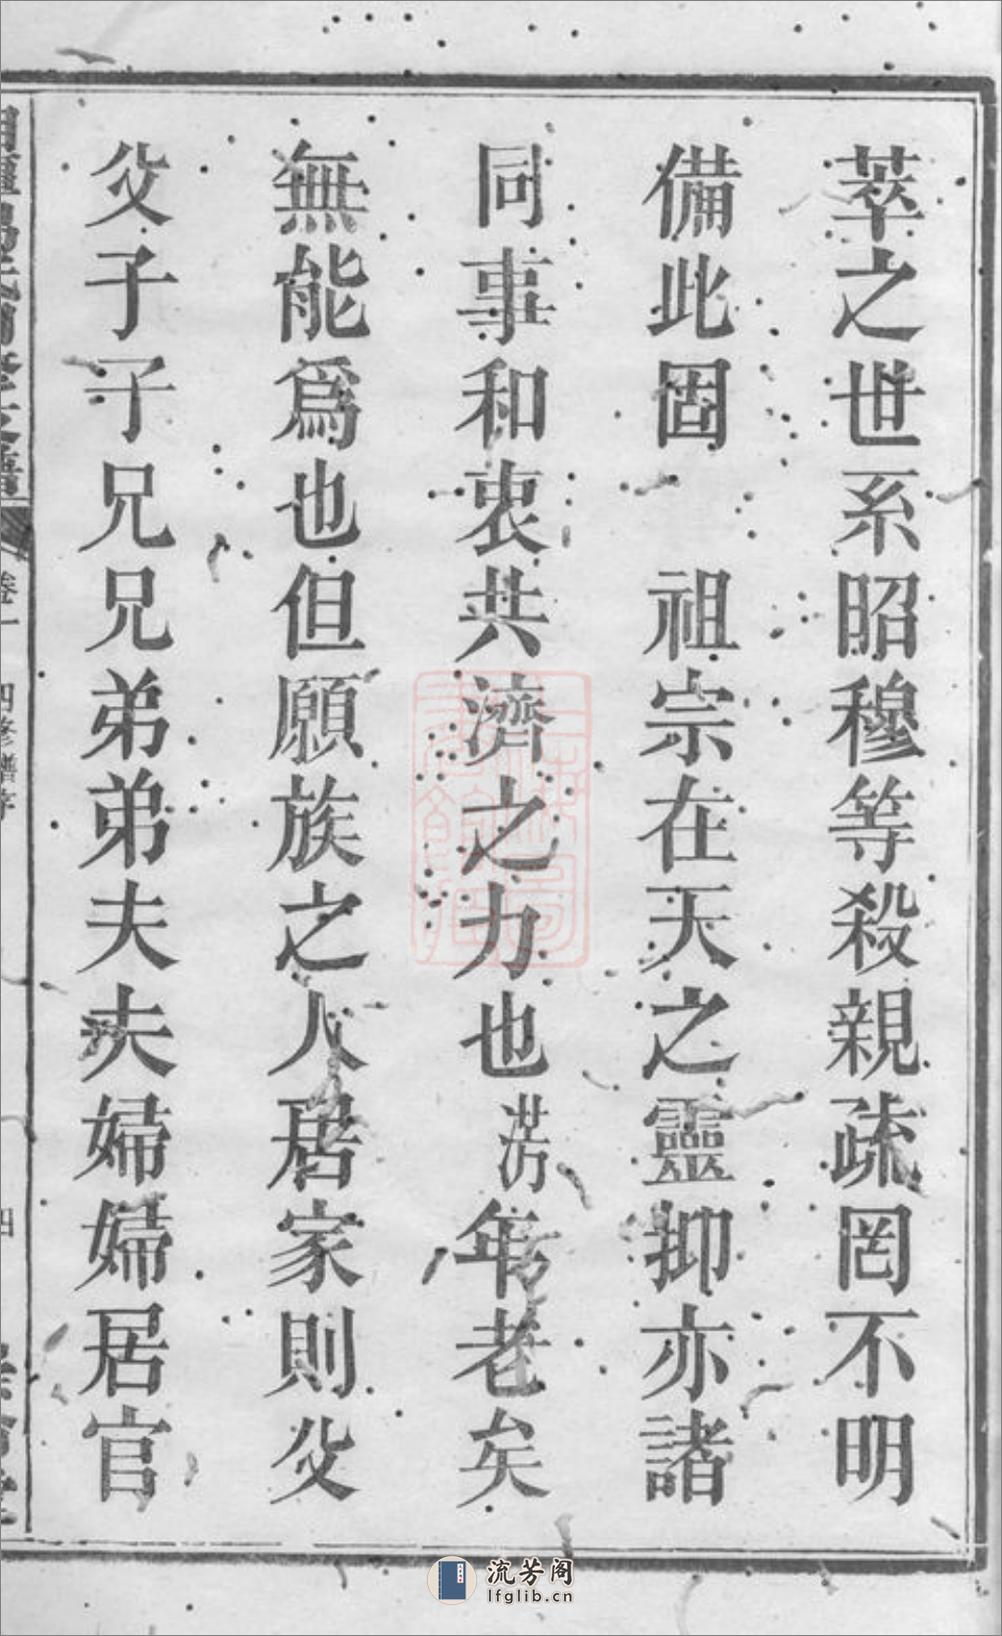 萃之世系昭穆等殺親疏罔不明
備此固　祖宗在天之靈抑亦諸
同事和衷共濟之力也淓年老矣
無能爲也但願族之人居家則父
父子子兄兄弟弟夫夫婦婦居官
卷一 四修譜序 四
流芳阁
lfglib.cn